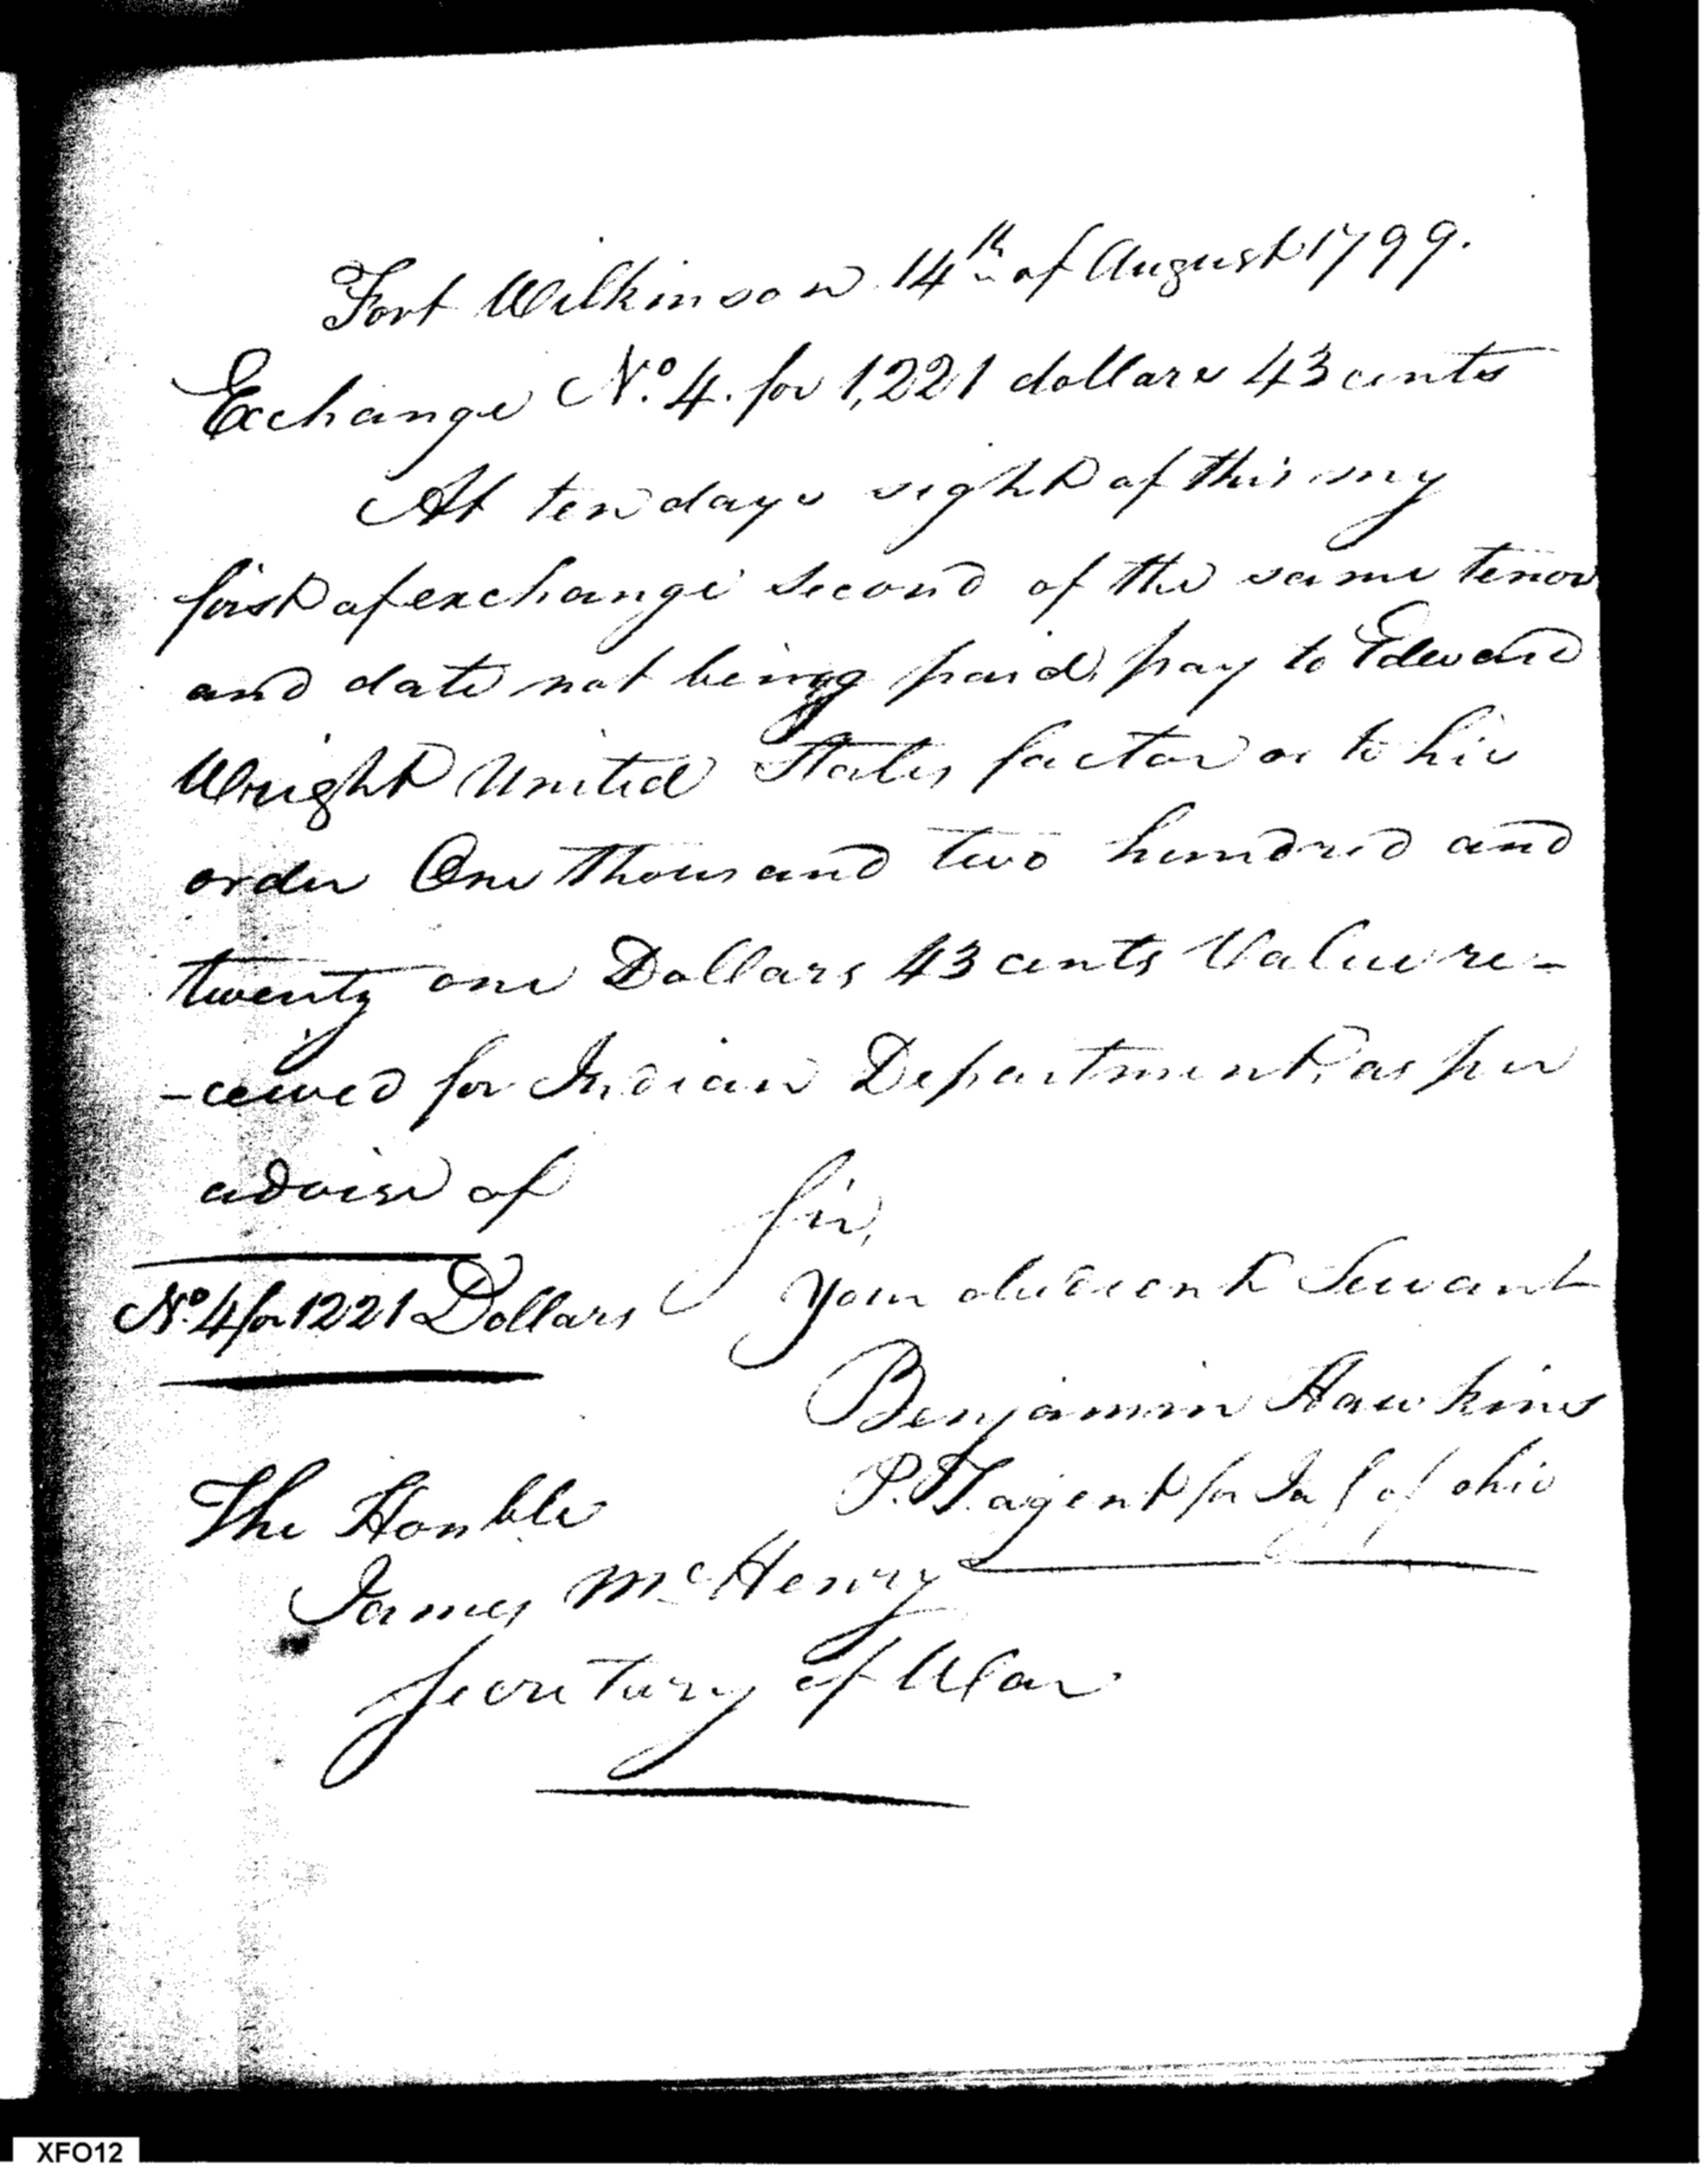 Fort Wilkinson 14th of August 1799.
Exchange No. 4. for 1,221 dollars 43 cents
At ten days sight of this my
first of exchange second of the same tenor
and date not being paid, pay to Edward
Wright United States factor or to his
order One thousand two hundred and
twenty one Dollars 43 cents Value re-
-ceived for Indian Department, as per
advise of
Sir,
No. 4 for 1221 Dollars
your obedient Servant
Benjamin Hawkins
P. T. agent for I a S of ohio
The Honble
James McHenry
Secretary of War
XFO12